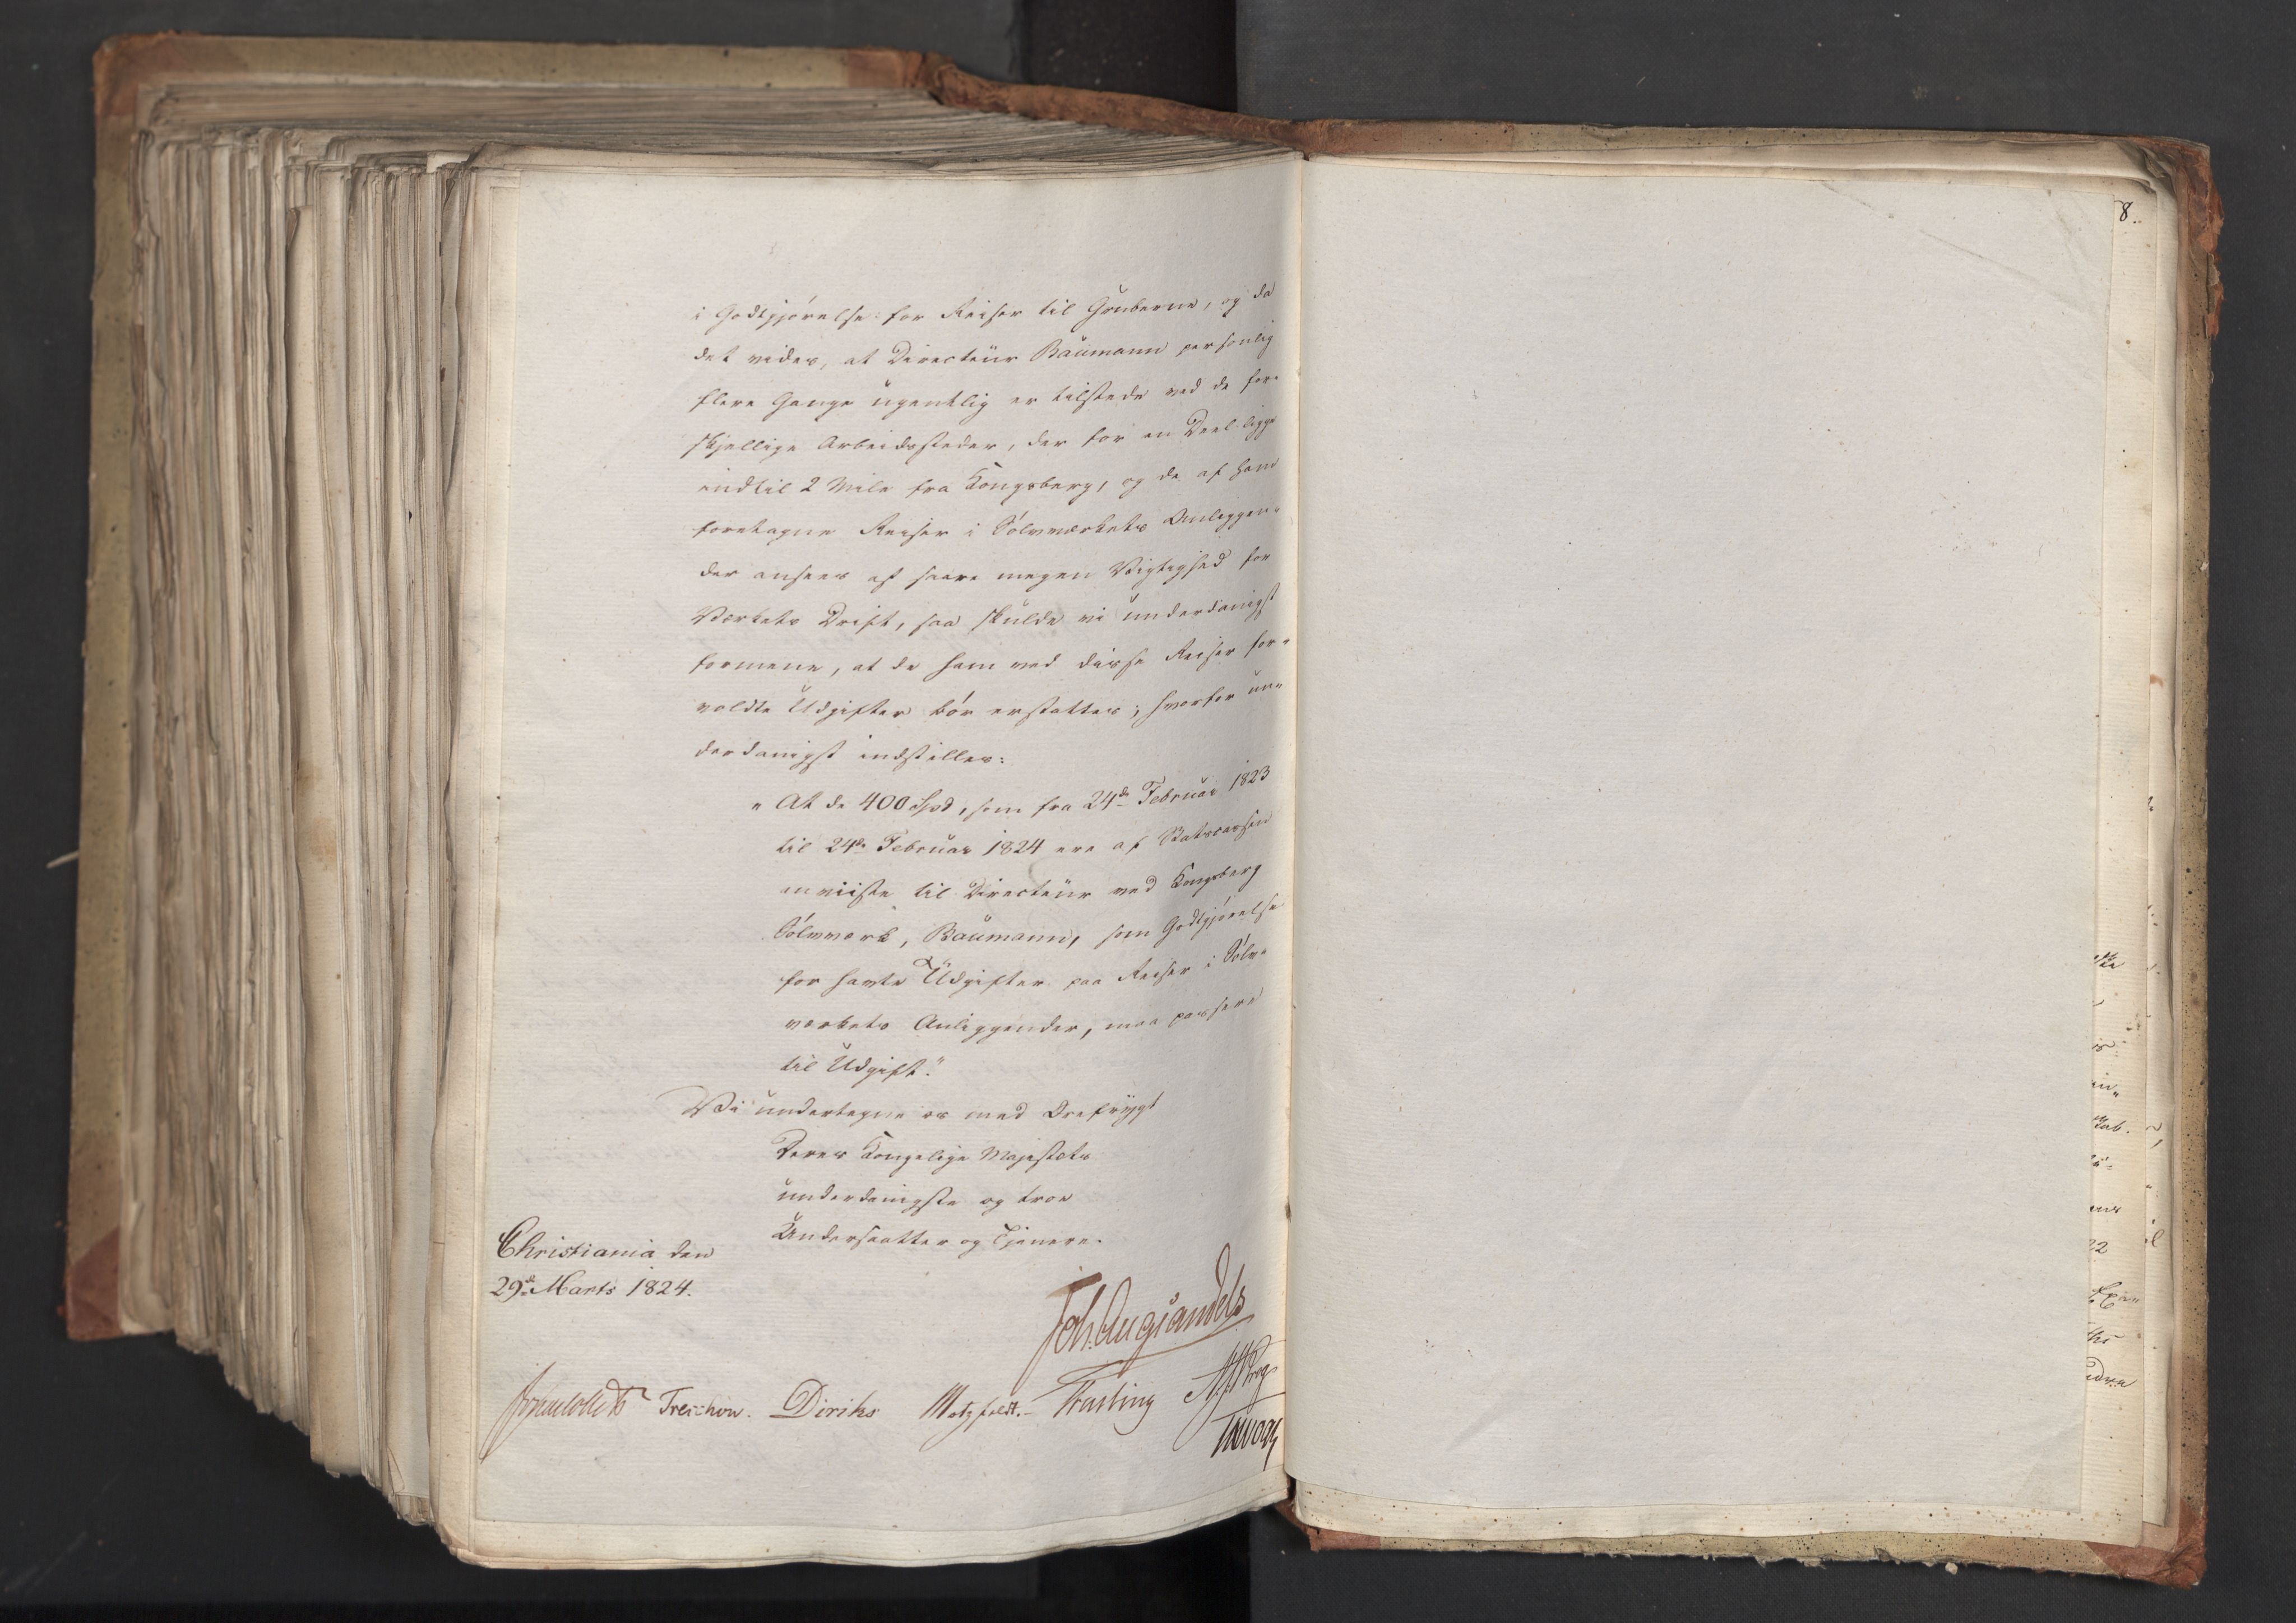 i Godtgjørelse for Reiser til Gruberne, og da
det vides, at Directeur Baumann personlig
flere Gange ugentlig er tilstede ved de for-
skjellige Arbeidssteder, der for en Deel ligge
indtil 2 Mile fra Kongsberg, og de af ham
foretagne Reiser i Sølvværkets Anliggen-
der ansees af saare megen Vigtighed for
Værkets Drift, saa skulde vi underdanigst
formene, at de ham ved disse Reiser for-
voldte Udgifter bør erstattes; hvorfor un-
derdanigst indstilles:
"At de 400 Spd, som fra 24de Februar 1823
til 24de Februar 1824 ere af Statscassen
anviiste til Directeur ved Kongsberg
Sølvværk, Baumann, som Godtgjørelse
for havte Udgifter paa Reiser i Sølv-
værkets Anliggender, maa passere
til Udgift."
Vi undertegne os med Ærefrygt
Deres Kongelige Majestæts
underdanigste og troe
Undersaatter og Tjenere.
Christiania den
29de Marts 1824.
Joh. Aug Sandels
Treschow. Diriks Motzfeldt. Fasting
8.